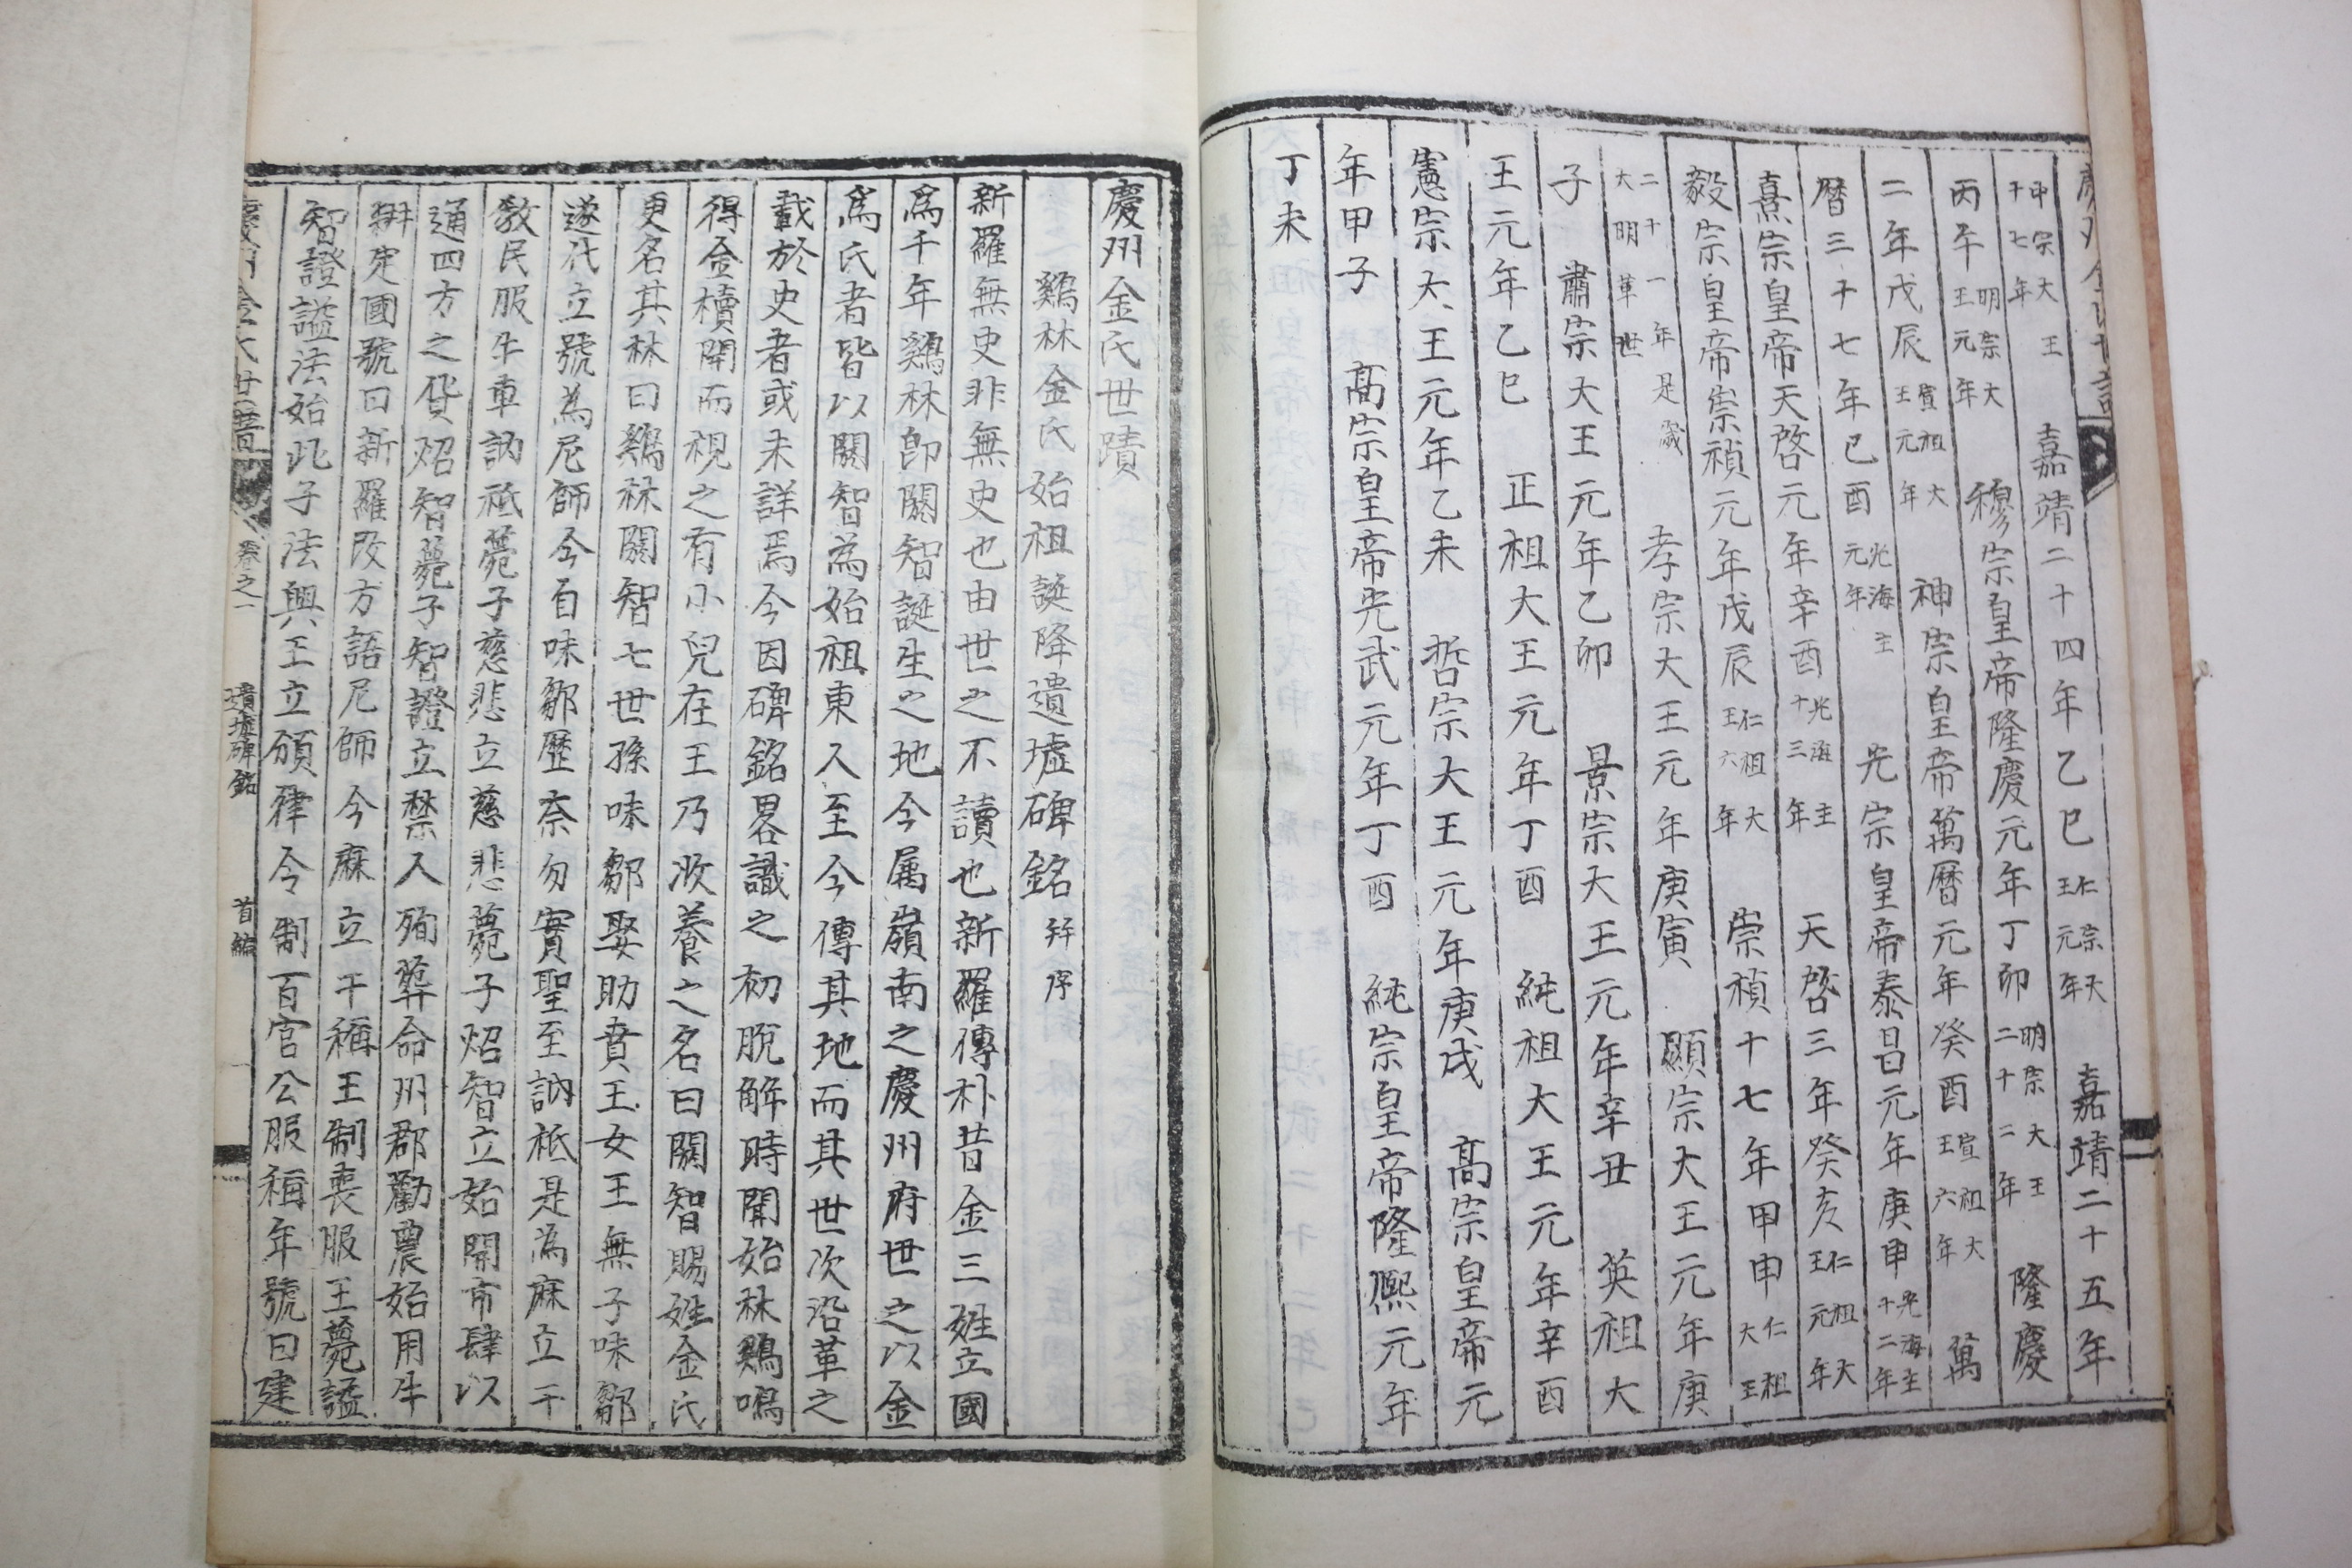 慶州金氏世譜
中宗大王十七年 嘉靖二十四年乙巳 仁宗大王元年 嘉靖二十五年
丙午 明宗大王元年 穆宗皇帝隆慶元年丁卯 明宗大王二十二年 隆慶
二年戊辰 宣祖大王元年 神宗皇帝萬曆元年癸酉 宣祖大王六年 萬
曆三十七年己酉 光海主元年 光宗皇帝泰昌元年庚申 光海主十二年
熹宗皇帝天啓元年辛酉 光海主十三年 天啓三年癸亥 仁祖大王元年
毅宗皇帝崇禎元年戊辰 仁祖大王六年 崇禎十七年甲申 仁祖大王
二十一年是歲大明革世 孝宗大王元年庚寅 顯宗大王元年庚
子 肅宗大王元年乙卯 景宗大王元年辛丑 英祖大
王元年乙巳 正祖大王元年丁酉 純祖大王元年辛酉
憲宗大王元年乙未 哲宗大王元年庚戌 高宗皇帝元
年甲子 高宗皇帝光武元年丁酉 純宗皇帝隆熙元年
丁未
慶州金氏世蹟
鷄林金氏始祖誕降遺墟碑銘 幷序
新羅無史非無史也由世之不讀也新羅傳朴昔金三姓立國
爲千年鷄林卽閼智誕生之地今属嶺南之慶州府世之以金
爲氏者皆以閼智為始祖東人至今傳其地而其世次沿革之
載於史者或未詳焉今因碑銘畧識之初脫解時聞始林鷄鳴
得金櫝開而視之有小兒在王乃收養之名曰閼智賜姓金氏
更名其林曰鷄林閼智七世孫味鄒娶助賁王女王無子味鄒
遂代立號為尼師今自味鄒歷奈勿實聖至訥祗是為麻立干
敎民服牛車訥祗薨子慈悲立慈悲薨子炤智立始開市肆以
通四方之貨炤智薨子智證立禁人殉葬命州郡勸農始用牛
耕定國號曰新羅改方語尼師今麻立干稱王制喪服王薨謚
智證謚法始此子法興王立頒律令制百官公服稱年號曰建
慶州金氏世譜 卷之一 遺墟碑銘 首編